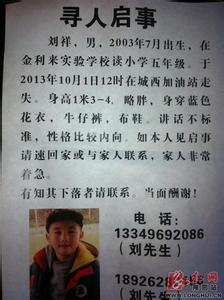 寻人启事
刘祥，男，2003年7月出生，在
金利来实验学校读小学五年级。于
2013年10月1日12时在城西加油站走
失。身高1米3-4，略胖，身穿蓝色
花衣，牛仔裤，布鞋。讲话不标
准，性格比较内向。如本人见启事
请速回家或与家人联系，家人非常
着急。
有知其下落者请联系。当面酬谢！
电话：
13349692086
(刘先生)
(刘先生)